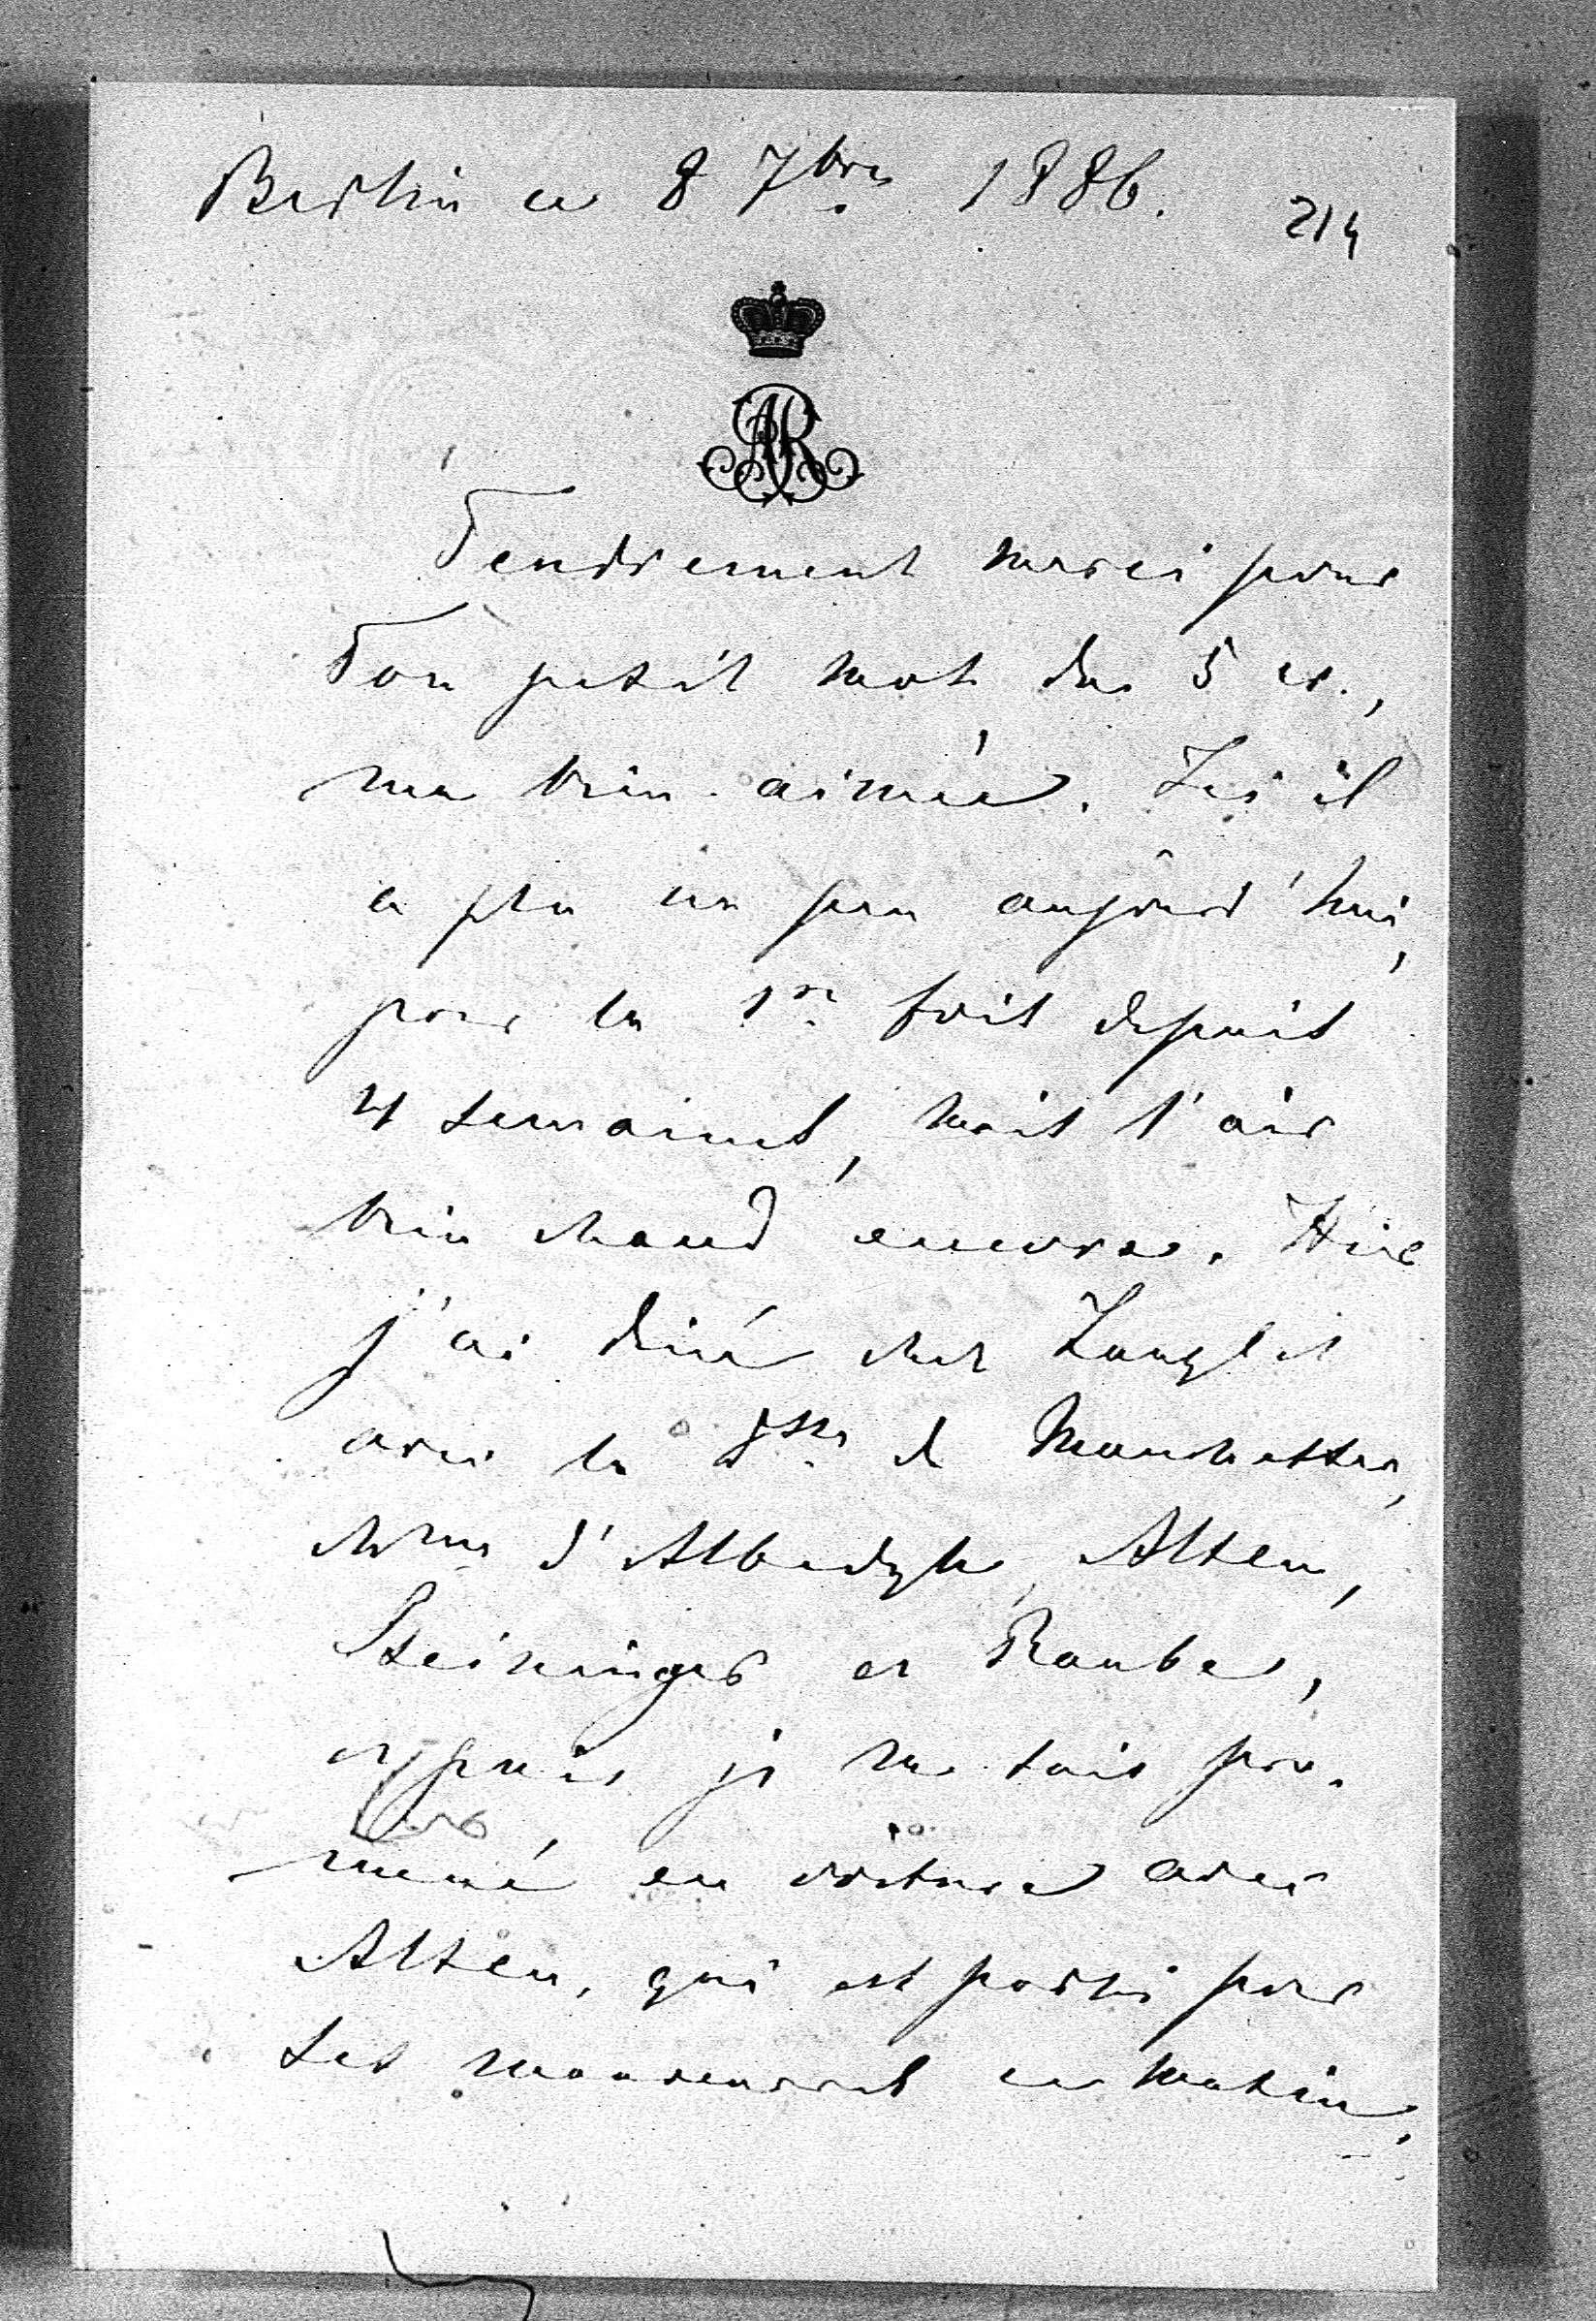 Berlin ce 8 7bre 1886.
214
AR
Tendrement merci pour
Ton petit mot du 5 cr.,
ma bien-aimée. Ici il
a plu un peu aujourd'hui,
pour la 1re fois depuis
4 semaines, mais l'air
bien chaud encore. Hier
j'ai diné chez Langlet
avec la Dsse de Manchester,
Mme d'Albedyll, Alten,
Steininger et Raube,
et puis je me suis pro-
mené en voiture avec
Alten, qui est parti pour
les manœuvres ce matin.